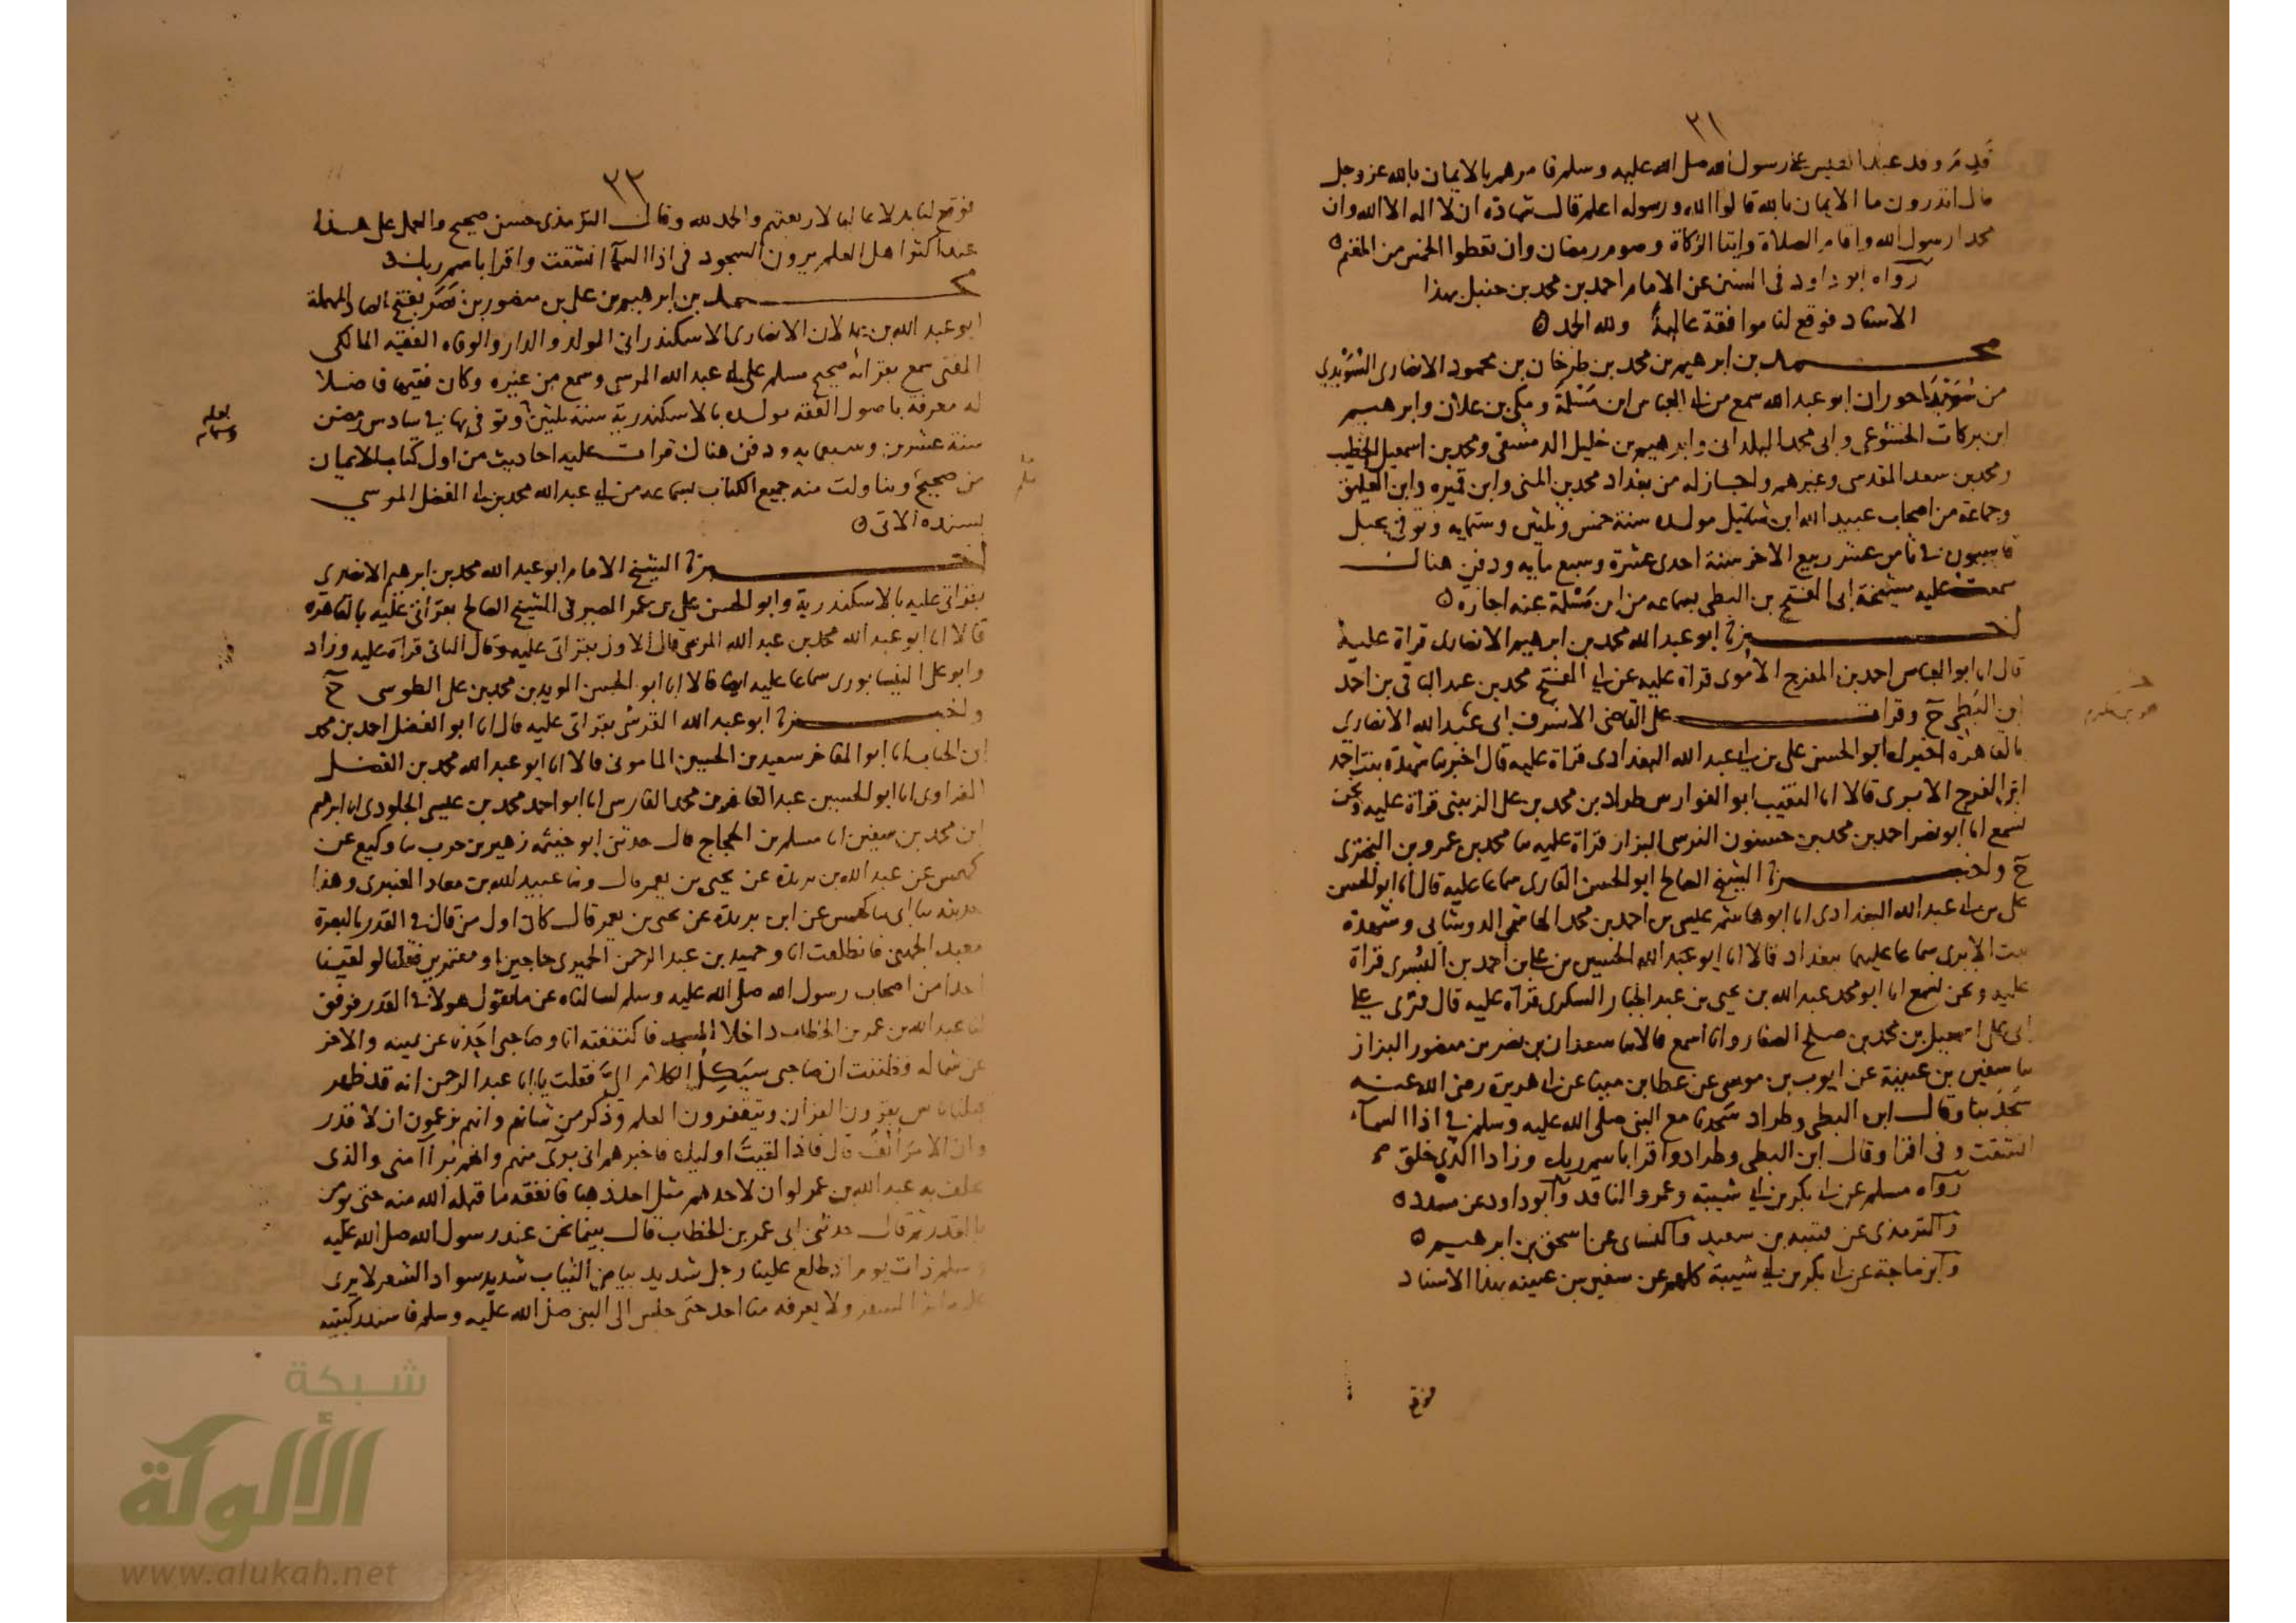 ٣١
قدم وفد عبد القيس على رسول الله صلى الله عليه وسلم فامرهم بالايمان بالله عز وجل
قال اتدرون ما الايمان بالله قالوا الله ورسوله اعلم قال شهادة ان لا اله الا الله وان
محمدا رسول الله واقام الصلاة وايتا الزكاة وصوم رمضان وان تعطوا الخمس من المغنم ه
رواه ابو داود في السنن عن الامام احمد بن محمد بن حنبل بهذا
الاسناد فوقع لنا موافقة عالية ولله الحمد ه
محمد بن ابرهيم بن محمد بن طرخان بن محمود الانصارى السُّوَيْدِي
من سُوَيْدَا حوران ابو عبد الله سمع من ابي العباس ابن مَسْلَمَة ومكى بن علان وابرهيم
ابن بركات الخشوعى وابى محمد البلدانى وابرهيم بن خليل الدمشقى ومحمد بن اسمعيل الخطيب
ومحمد بن سعد المقدسى وغيرهم واجاز له من بغداد محمد بن المنى وابن قميره وابن العليق
وجماعة من اصحاب عبيد الله ابن شاتيل مولده سنة خمس وثلثين وستمايه وتوفي بجبل
قاسيون في ثامن عشر ربيع الاخر سنة احدى عشرة وسبع مايه ودفن هناك
سمعت عليه مشيخة ابى الفتح بن البطى بسماعه من ابن مَسْلَمة عنه اجازه ه
اخبرنا ابو عبد الله محمد بن ابرهيم الانصارى قراة عليه
قال انا ابو العباس احمد بن المفرج الاموى قراة عليه عن ابي الفتح محمد بن عبد الباقى بن احمد
ابن البَطى ح وقرات على القاضى الاشرف ابى عبد الله الانصارى
بالقاهرة اخبرك ابو الحسن على بن ابي عبد الله البغدادى قراة عليه قال اخبرتنا شهدة بنت احمد
ابن الفرج الابرى قالا انا النقيب ابو الفوارس طراد بن محمد بن على الزينبى قراة عليه ونحن
نسمع انا ابو نصر احمد بن محمد بن حسنون النرسى البزاز قراة عليه نا محمد بن عمرو بن البخترى
ح واخبرنا الشيخ الصالح ابو الحسن القارى سماعا عليه قال انا ابو الحسن
على بن ابي عبد الله البغدادى انا ابو هاشم عيسى بن احمد بن محمد الهاشمى الدوشابى وشهدة
بنت الابرى سماعا عليهما ببغداد قالا انا ابو عبد الله الحسين بن على بن احمد بن البُسْرى قراة
عليه ونحن نسمع انا ابو محمد عبد الله بن يحيى بن عبد الجبار السكرى قراة عليه قال قرئ على
ابى على اسمعيل بن محمد بن صلح الصفار وانا اسمع قالا نا سعدان بن نصر بن منصور البزاز
نا سفين بن عيينة عن ايوب بن موسى عن عطا بن مينا عن ابي هريرة رضى الله عنه
سَجَدْنا وقال ابن البطى وطراد سجدنا مع النبى صلى الله عليه وسلم في اذا السمآء
انشقت وفى اقرا وقال ابن البطى وطراد واقرا باسم ربك وزادا الذى خلق
رواه مسلم عن ابي بكر بن ابي شيبة وعمرو الناقد وابو داود عن مسدد ه
والترمذى عن قتيبه بن سعيد والنسائى عن اسحق بن ابرهيم ه
وابن ماجة عن ابي بكر بن ابي شيبة كلهم عن سفين بن عيينه بهذا الاسناد
فوقع
٣٢
فوقع لنا بدلا عاليا لاربعتهم والحمد لله وقال الترمذى حسن صحيح والعمل على هذا
عند اكثر اهل العلم يرون السجود فى اذا السمآ انشقت واقرا باسم ربك ه
محمد بن ابرهيم بن على بن منصور بن نَصَر بفتح الصاد المهملة
ابو عبد الله بن بدلان الانصارى الاسكندرانى المولد والدار والوفاه الفقيه المالكى
المفتى سمع بقراته صحيح مسلم على ابي عبد الله المرسى وسمع من غيره وكان فقيها فاضلا
له معرفة باصول الفقه مولده بالاسكندرية سنة ثلثين وتوفى بها في سادس رمضن
سنة عشرين وسبعمايه ودفن هناك قرات عليه احاديث من اول كتاب الايمان
من صحيح وناولت منه جميع الكتاب بسماعه من ابي عبد الله محمد بن ابي الفضل المرسي
بسنده الاتى ه
اخبرنا الشيخ الامام ابو عبد الله محمد بن ابرهيم الانصارى
بقراتى عليه بالاسكندرية وابو الحسن على بن عمر الصيرفى الشيخ الصالح بقراتى عليه بالقاهره
قالا انا ابو عبد الله محمد بن عبد الله المرسى قال الاول بقراتى عليه وقال الثانى قراة عليه وزاد
وابو على النيسابورى سماعا عليه ايضا قالا انا ابو الحسن المويد بن محمد بن على الطوسى ح
واخبرنا ابو عبد الله القرشى بقراتى عليه قال انا ابو الفضل احمد بن محمد
ابن الحباب انا ابو المفاخر سعيد بن الحسين المامونى قالا انا ابو عبد الله محمد بن الفضل
الفراوى انا ابو الحسين عبد الغافر بن محمد الفارسى انا ابو احمد محمد بن عيسى الجلودى انا ابرهيم
ابن محمد بن سفين انا مسلم بن الحجاج قال حدثنى ابو خيثمه زهير بن حرب نا وكيع عن
كهمس عن عبد الله بن بريدة عن يحيى بن يعمر قال ونا عبيد الله بن معاذ العنبرى وهذا
حديثه نا ابى نا كهمس عن ابن بريدة عن يحيى بن يعمر قال كان اول من قال في القدر بالبصرة
معبد الجهنى فانطلقت انا وحميد بن عبد الرحمن الحميرى حاجين او معتمرين فقلنا لو لقينا
احدا من اصحاب رسول الله صلى الله عليه وسلم لسالناه عن ما يقول هولا في القدر فوفق
لنا عبد الله بن عمر بن الخطاب داخلا المسجد فاكتنفته انا وصاحبى احدنا عن يمينه والاخر
عن شماله فظننت ان صاحبى سَيَكِلُ الكلام الىَّ فقلت يا ابا عبد الرحمن انه قد ظهر
قبلنا ناس يقرون القران ويتقفرون العلم وذكر من شانهم وانهم يزعمون ان لا قدر
وان الامر أُنُفٌ قال فاذا لقيتَ اوليك فاخبرهم انى برىء منهم وانهم بُرآ منى والذى
يحلف به عبد الله بن عمر لو ان لاحدهم مثل احد ذهبا فانفقه ما قبله الله منه حتى يومن
بالقدر ثم قال حدثنى ابى عمر بن الخطاب قال بينما نحن عند رسول الله صلى الله عليه
وسلم ذات يوم اذ طلع علينا رجل شديد بياض الثياب شديد سواد الشعر لا يرى
عليه اثر السفر ولا يعرفه منا احد حتى جلس الى النبى صلى الله عليه وسلم فاسند ركبتيه
شبكة
الألوكة
www.alukah.net